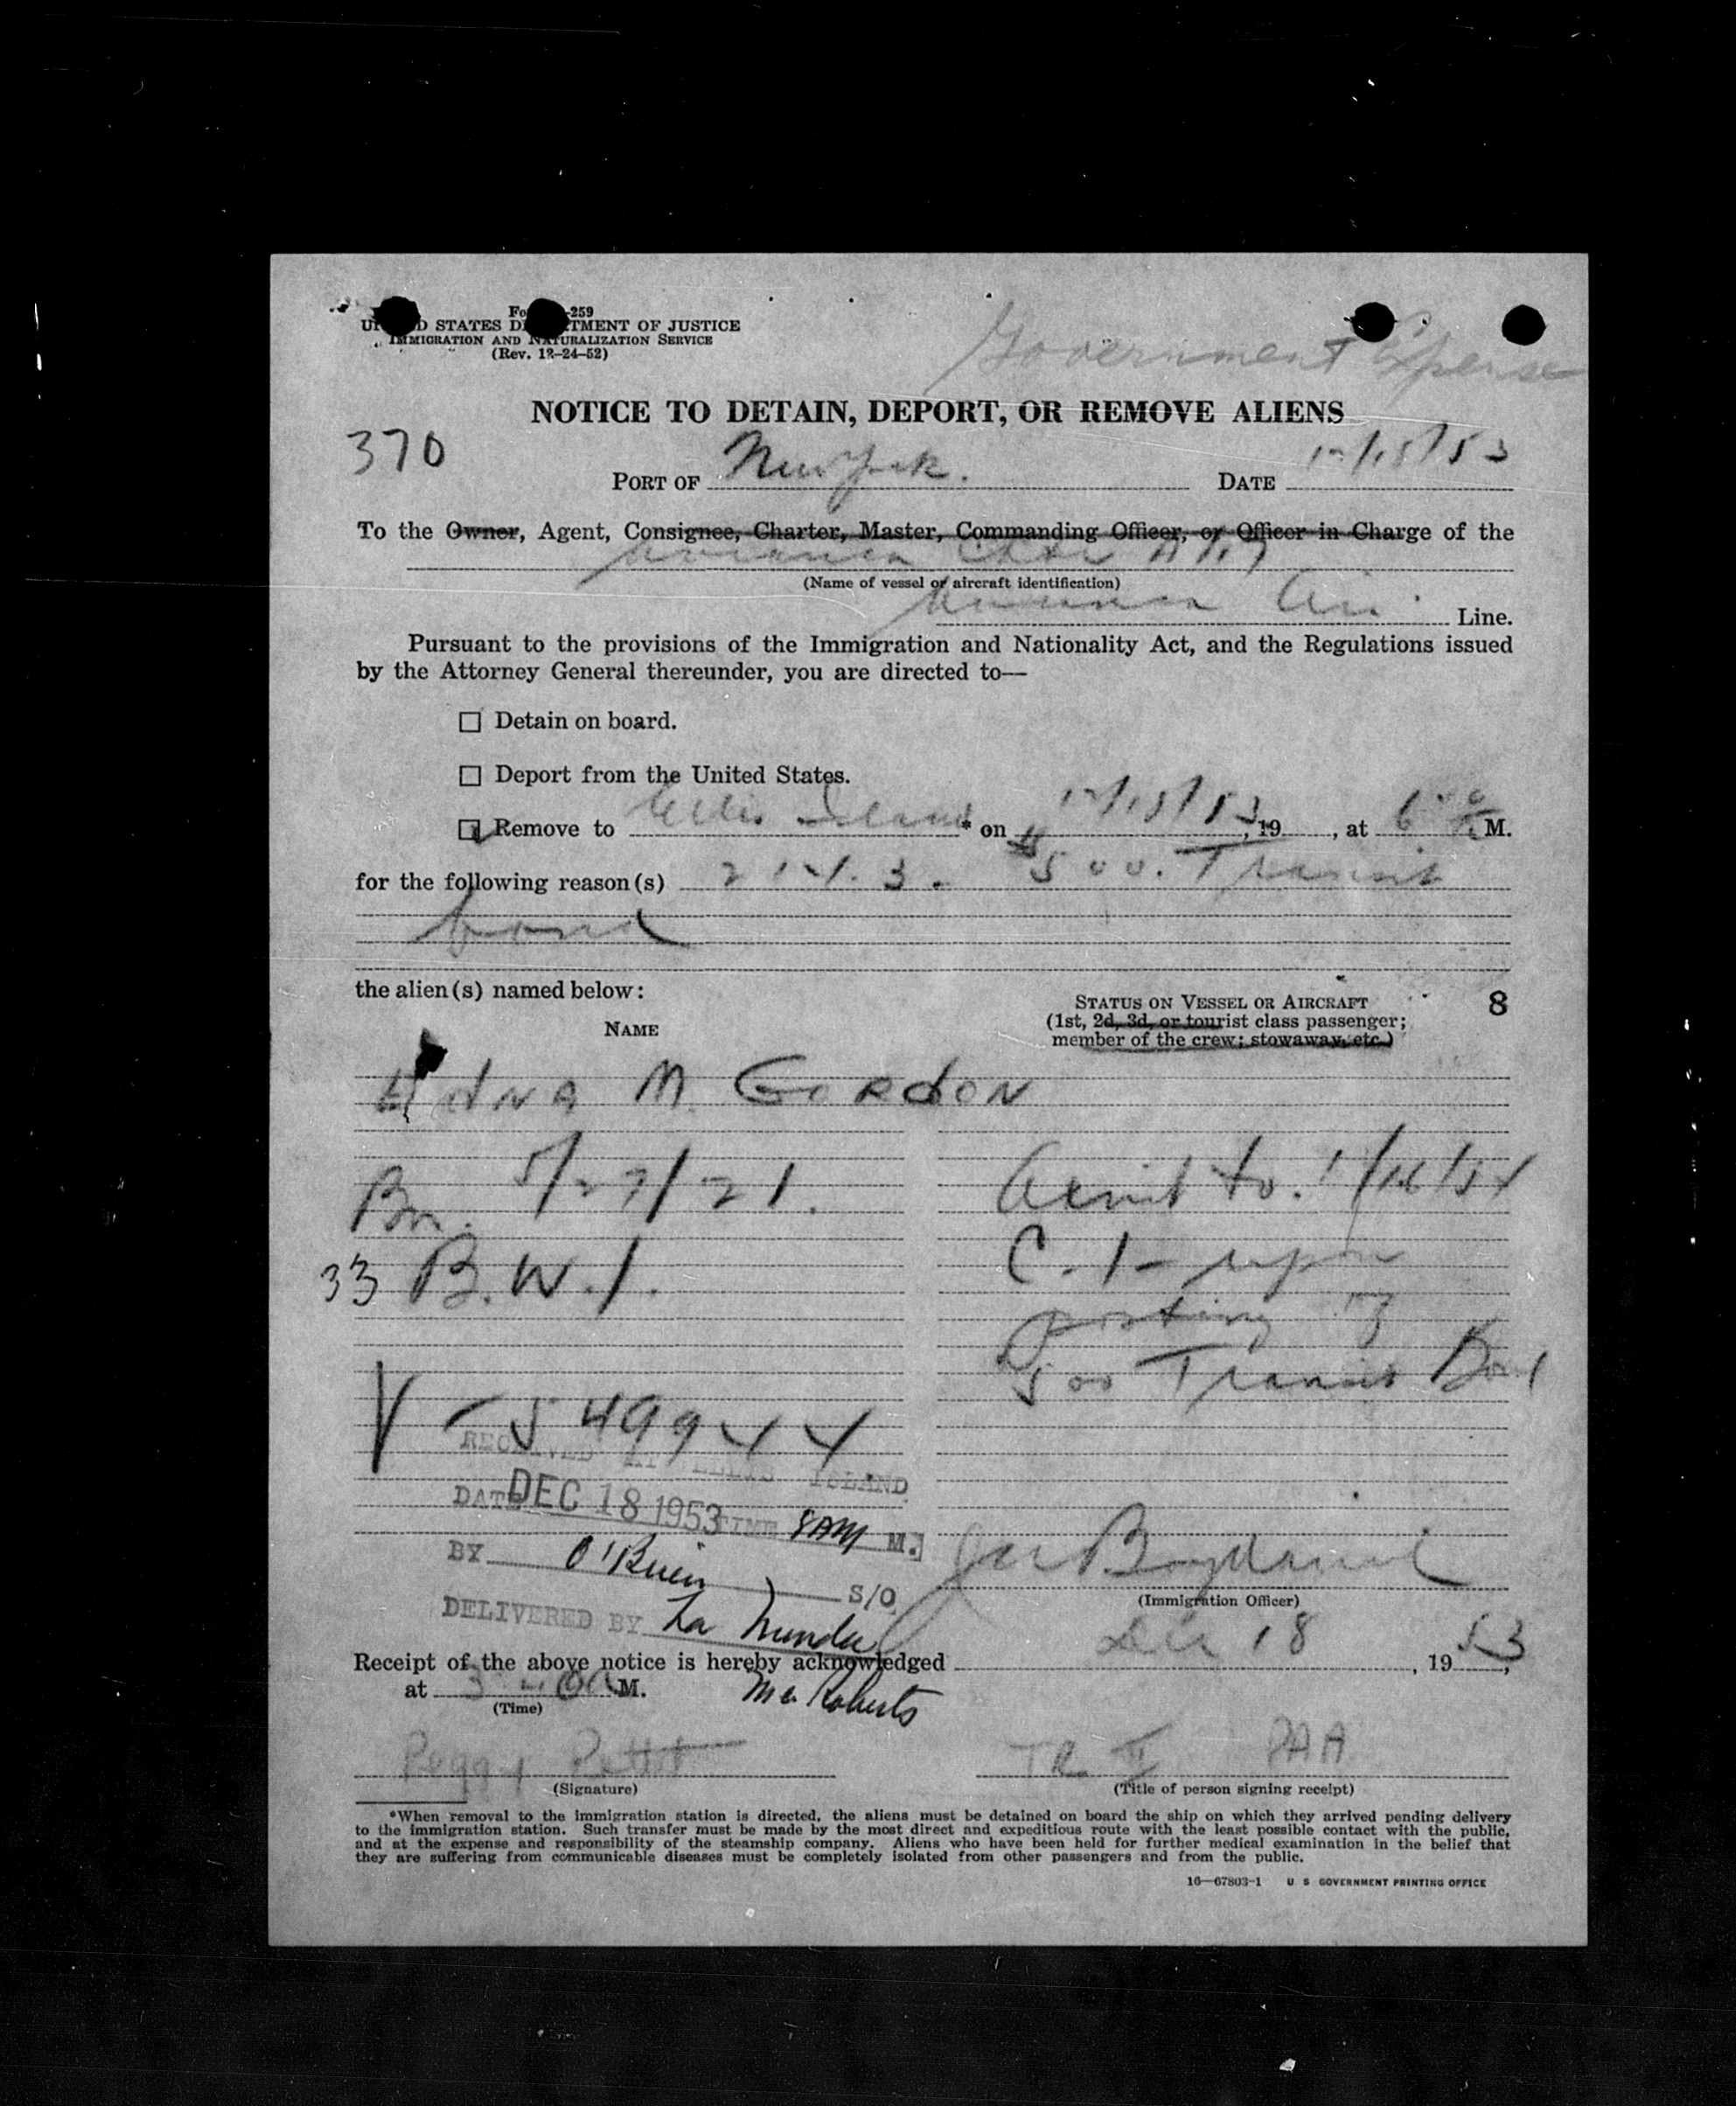 Form -259
UNITED STATES DEPARTMENT OF JUSTICE
IMMIGRATION AND NATURALIZATION SERVICE
(Rev. 12-24-52)
Government Expense
NOTICE TO DETAIN, DEPORT, OR REMOVE ALIENS
370
PORT OF New York. DATE 12/15/53
To the Owner, Agent, Consignee, Charter, Master, Commanding Officer, or Officer in Charge of the
(Name of vessel or aircraft identification)
Air Line.
Pursuant to the provisions of the Immigration and Nationality Act, and the Regulations issued
by the Attorney General thereunder, you are directed to—
☐ Detain on board.
☐ Deport from the United States.
☑ Remove to Ellis Island * on , 19 , at M.
for the following reason(s) $500. Transit
bond
the alien(s) named below:
STATUS ON VESSEL OR AIRCRAFT
(1st, 2d, 3d, or tourist class passenger;
member of the crew; stowaway, etc.)
8
NAME
Edna M. GORDON
Bn. 5/27/21.
33 B.W.I.
Admit to. 1/16/54
C-1- upon
posting of
500 Transit Bond
V-549944
RECEIVED AT ELLIS ISLAND
DATE DEC 18 1953 TIME 8AM M.
BY O'Brien S/O
DELIVERED BY
(Immigration Officer)
Receipt of the above notice is hereby acknowledged Dec 18, 1953,
at M.
(Time)
Mc Roberts
Peggy Pettit
(Signature)
TR II PAA
(Title of person signing receipt)
*When removal to the immigration station is directed, the aliens must be detained on board the ship on which they arrived pending delivery
to the immigration station. Such transfer must be made by the most direct and expeditious route with the least possible contact with the public,
and at the expense and responsibility of the steamship company. Aliens who have been held for further medical examination in the belief that
they are suffering from communicable diseases must be completely isolated from other passengers and from the public.
16—67803-1 U S GOVERNMENT PRINTING OFFICE